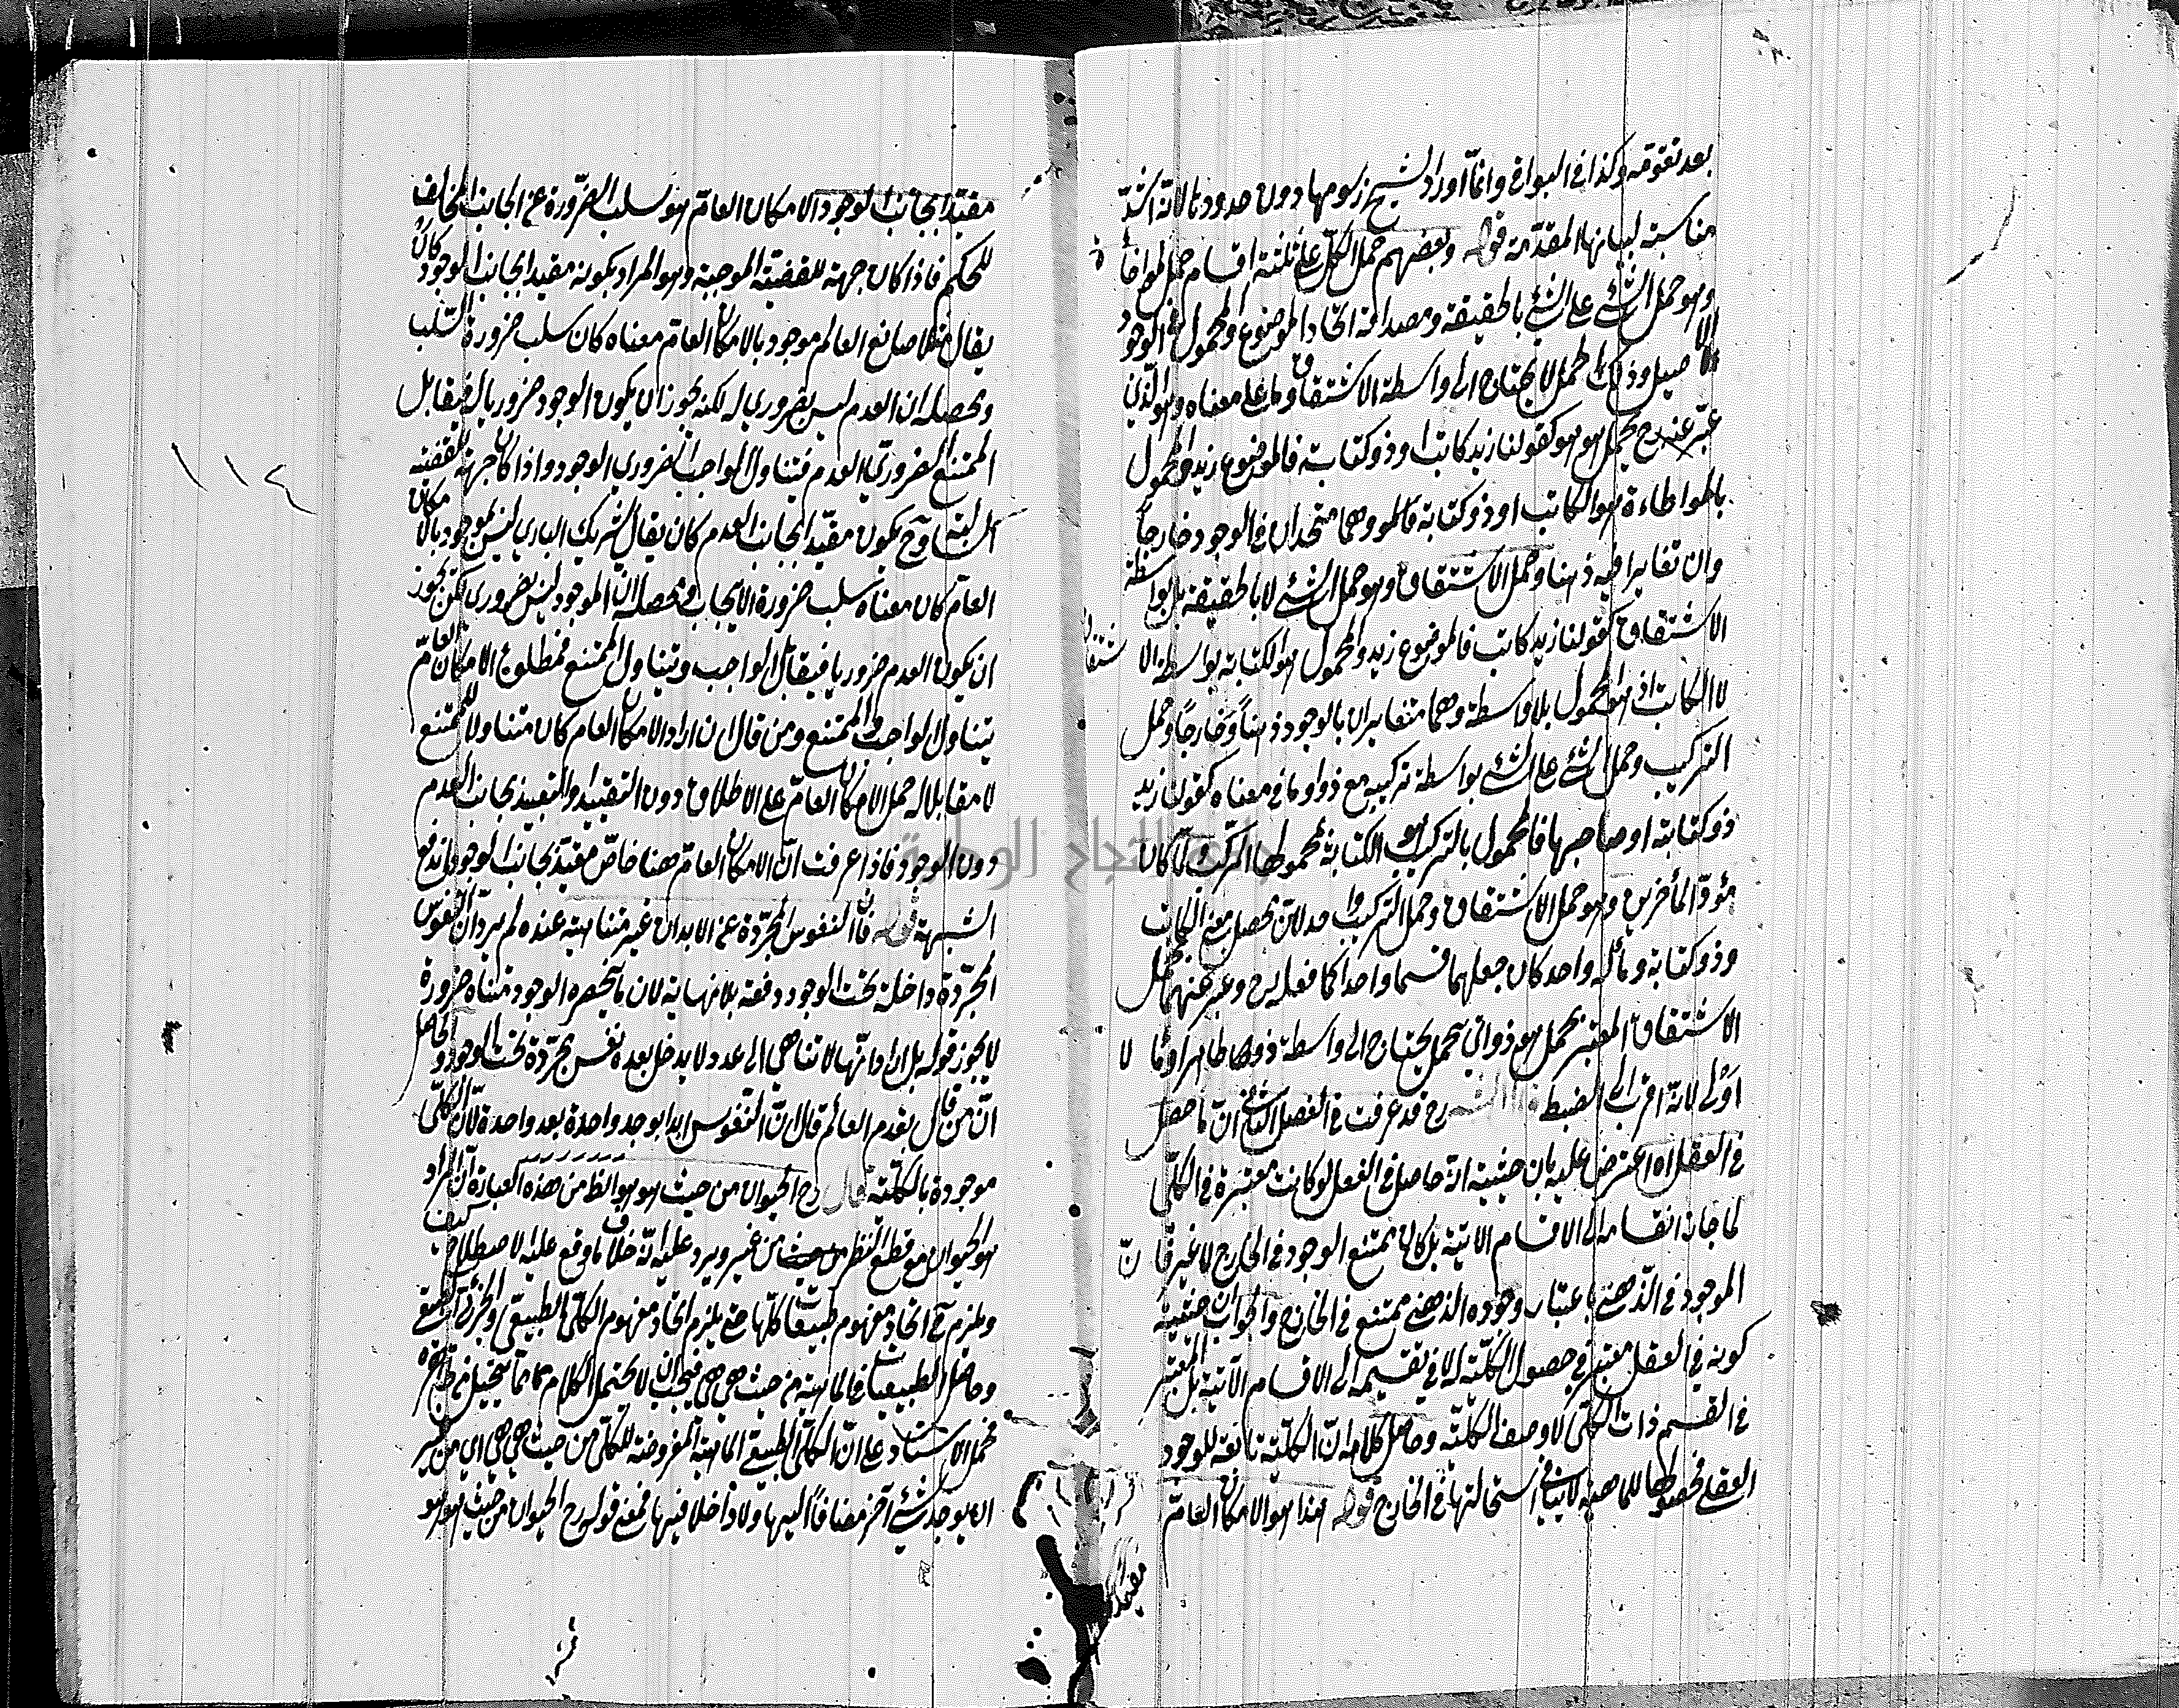 بعد تفوقه وكذا في البواقي وانما اورد الشيخ رسومها دون حدودها لانه اشد
مناسبة لبيانها المقدمة قوله وبعضهم حمل الكلي على ثلثة اقسام حمل المواطأة
وهو حمل الشئ على الشئ بالحقيقة ومصداقه اتحاد الموضوع والمحمول في الوجود
الاصيل وذلك الحمل لا يحتاج الى واسطة الاشتقاق وما في معناه وهو الذي
عبر عنه رح بحمل هو هو كقولنا زيد كاتب او ذو كتابة فالموضوع زيد والمحمول
بالمواطاءة هو الكاتب او ذو كتابة وهما متحدان في الوجود خارجاً
وان تغايرا فيه ذهنا وحمل الاشتقاق وهو حمل الشئ لا بالحقيقة بل بواسطة
الاشتقاق كقولنا زيد كاتب فالموضوع زيد والمحمول هو الكتابة بواسطة الاشتقاق
لا الكاتب اذ هو المحمول بلا واسطة وهما متغايران بالوجود ذهناً وخارجاً وحمل
التركيب وحمل الشئ على الشئ بواسطة تركيبه مع ذو او ما في معناه كقولنا زيد
ذو كتابة او صاحبها فالمحمول بالتركيب هو الكتابة لمحمولها المركب لما كان
مؤدّ المأخرين وهو حمل الاشتقاق وحمل التركيب واحد لان يحصل معنى الكاتب
وذو كتابة ومآله واحد كان جعلهما قسما واحدا كما فعله رح وعبر عنهما بحمل
الاشتقاق المعتبر بحمل هو ذو اي حمل يحتاج الى واسطة ذو اما ظاهرا واما لا
اولى لانه اقرب الى الضبط رح قد عرفت في الفصل الثاني ان ما حصل
في العقل اه اعترض عليه بان حيثية انه حاصل في العقل لو كانت معتبرة في الكلي
لما جاز انقسامه الى الاقسام الاتية بل كان ممتنع الوجود في الخارج لا غير فان
الموجود في الذهن باعتبار وجوده الذهني ممتنع في الخارج والجواب ان حيثية
كونه في العقل معتبر في حصول الكلية له لا في تقسيمه الى الاقسام الآتية بل المعتبر
في القسم ذات الكلي لا وصف الكلية وحاصل كلامه ان الكلية تابعة للوجود
العقلي فحصولها للماهية لا ينافي استحالتها في الخارج قوله هذا هو الامكان العام
مقيدا
مقيد الجانب الوجود الامكان العام هو سلب الضرورة عن الجانب المخالف
للحكم فاذا كان جهة للقضية الموجبة وهو المراد بكونه مقيدا بجانب الوجود كان
يقال مثلا صانع العالم موجود بالامكان العام معناه كان سلب ضرورة السلب
ومحصله ان العدم ليس بضروري له لكنه يجوز ان يكون الوجود ضروريا له فيقابل
الممتنع الضروري العدم فيتناول الواجب الضروري الوجود واذا كان جهة للقضية
السالبة وح يكون مقيد الجانب العدم كان يقال شريك الباري ليس بموجود بالامكان
العام كان معناه سلب ضرورة الايجاب ومحصله ان الموجود ليس بضروري لكن يجوز
ان يكون العدم ضروريا فيقابل الواجب ويتناول الممتنع فمطلوع الامكان العام
يتناول الواجب والممتنع ومن قال ان اراد الامكان العام كان متناولا للممتنع
لا مقابلا له حمل الامكان العام على الاطلاق دون التقييد والتقييد بجانب العدم
دون الوجود فاذا عرفت ان الامكان العام ههنا خاص مقيد بجانب الوجود اندفع
الشبهة قوله فان النفوس المجردة عن الابدان غير متناهية عنده لم يرد ان النفوس
المجردة داخلة تحت الوجود دفعة بلا نهاية لان ما يحصره الوجود متناه ضرورة
لا يجوز قوله بل اراد انها لا تناهى الى عدد لا يدخل بعده نفس مجردة تحت الوجود والحاصل
ان من قال بقدم العالم قال ان النفوس ابدا يوجد واحدة بعد واحدة لان الكلي
موجودة بالكلية قال رح الحيوان من حيث هو هو الظ من هذه العبارة ان المراد
هو الحيوان مع قطع النظر من غير ويرد عليه انه خلاف ما وقع عليه الاصطلاح
ويلزم ح اتحاد مفهوم طبيعيات كلها حتى يلزم اتحاد مفهوم الكلي الطبيعي والجزئي الطبيعي
وحاصل الطبيعيات الماهية من حيث هي هي فيجب ان لا يحتمل الكلام
على ان الكلي الطبيعي الماهية المعروضة للكلي من حيث هي هي اي من غير
ان يوجد شئ آخر مضافاً اليها ولا داخلا فيها فمعنى قوله رح الحيوان من حيث هو هو
١١٤